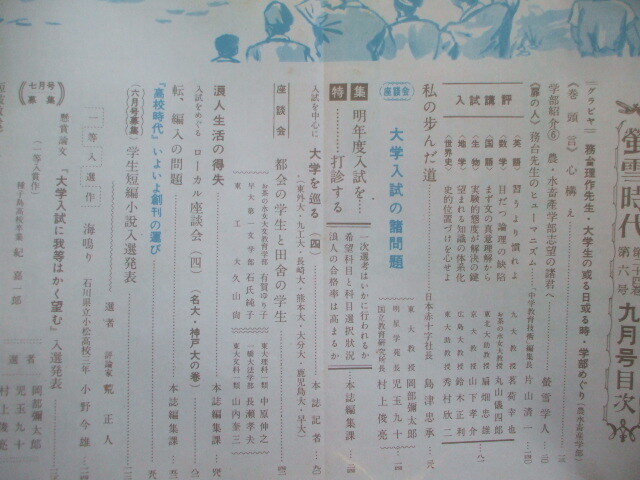 螢雪時代
第六号
九月号目次
グラビヤ
務台理作先生・大学生の或る日或る時・学部めぐり
(農水畜産学部)
〈巻頭言〉心構え
螢雪学人
学部紹介⑥ 農・水畜産学部志望の諸君へ
〈扉の人〉務台先生のヒューマニズム
片山清一
入試講評
〈英語〉習うより慣れよ
九大教授
〈数学〉目だつ論理の欠陥
お茶の水女大教授 丸山儀四郎
〈国語〉まず文の真意理解から
東北大助教授 扇畑忠雄
〈生物〉実験的態度が解決の鍵
京大助教授 山下孝介
〈地学〉望まれる知識の体系化
広島大教授 鈴木正利
〈世界史〉史的位置づけを心せよ
東大教授 秀村欣二
私の歩んだ道
日本赤十字社長 島津忠承
座談会
大学入試の諸問題
東大教授 岡部彌太郎
明星学苑長 児玉九十
国立教育研究所長 村上俊亮
特集
明年度入試を……打診する
一次選考はいかに行われるか
希望科目と科目選択状況
浪人の合格率は高まるか
本誌編集課
入試を中心に 大学を巡る(四)
(東外大・九工大・長崎大・熊本大・大分大・鹿児島大・早大)
本誌記者
座談会
都会の学生と田舎の学生
お茶の水女大文教育学部 有賀ゆり子
早大第一文学部 石氏純子
東工大 久山尚
東大理科一類 中原伸之
一橋大法学部 長瀬孝夫
東大文科一類 山内奎三
浪人生活の得失
本誌編集課
入試をめぐる ローカル座談会(四)(名大・神戸大の巻)
転、編入の問題
本誌編集課
「高校時代」いよいよ創刊の運び
(六月号募集) 学生短編小説入選発表
選者 評論家 荒正人
二等入選作 海鳴り
石川県立小松高校三年 小野今雄
七月号募集
懸賞論文 「大学入試に我等はかく望む」入選発表
選者
岡部彌太郎
児玉九十
村上俊亮
(一等入賞作)
種子島高校卒業 紀笛一郎